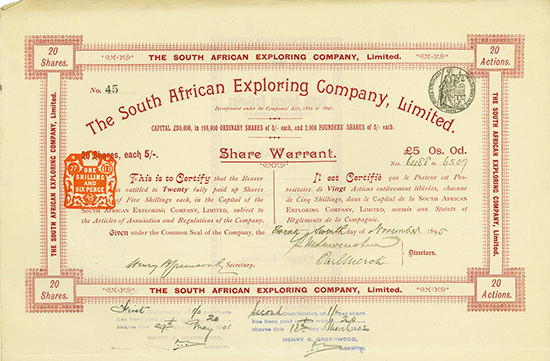 20 Shares.
THE SOUTH AFRICAN EXPLORING COMPANY, Limited.
20 Actions.
No. 45
The South African Exploring Company, Limited.
Incorporated under the Companies' Acts, 1862 to 1890.
CAPITAL £50,000, in 198,000 ORDINARY SHARES of 5/- each, and 2,000 FOUNDERS' SHARES of 5/- each.
20 Shares, each 5/-.
Share Warrant.
£5 0s. 0d.
Nos. 6488 to 6507
27
III
ONE
SHILLING
AND
SIX PENCE
This is to Certify that the Bearer
is entitled to Twenty fully paid up Shares
of Five Shillings each, in the Capital of the
SOUTH AFRICAN EXPLORING COMPANY, LIMITED, subject to
the Articles of Association and Regulations of the Company.
Il est Certifié que le Porteur est Pro-
priétaire de Vingt Actions entièrement libérées, chacune
de Cinq Shillings, dans le Capital de la SOUTH
AFRICAN EXPLORING COMPANY, LIMITED, soumis aux Statuts et
Règlements de la Compagnie.
Given under the Common Seal of the Company, the day of November 1895
Directors.
Secretary.
THE SOUTH AFRICAN EXPLORING COMPANY, Limited.
THE SOUTH AFRICAN EXPLORING COMPANY, Limited.
20 Shares.
THE SOUTH AFRICAN EXPLORING COMPANY, Limited.
20 Actions.
First
has been paid 20
shares this 29th May 1901
Second Distribution of 1/- per share
has been paid 20
shares this 18th day March 1902
HENRY B. GREENWOOD,